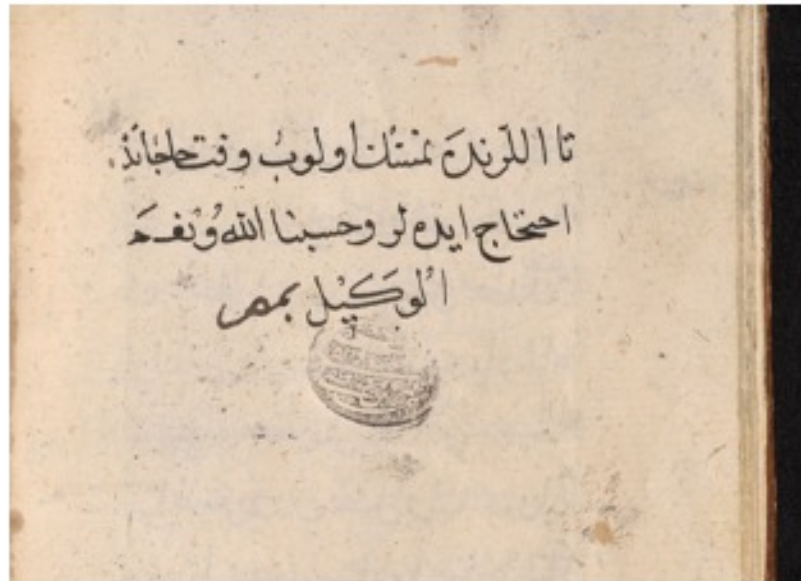 تا اللرنده تمسّك اولوب وقت حاجاتده
احتجاج ايده لر وحسبنا الله وَنِعْمَ
الوَكيْل تمم